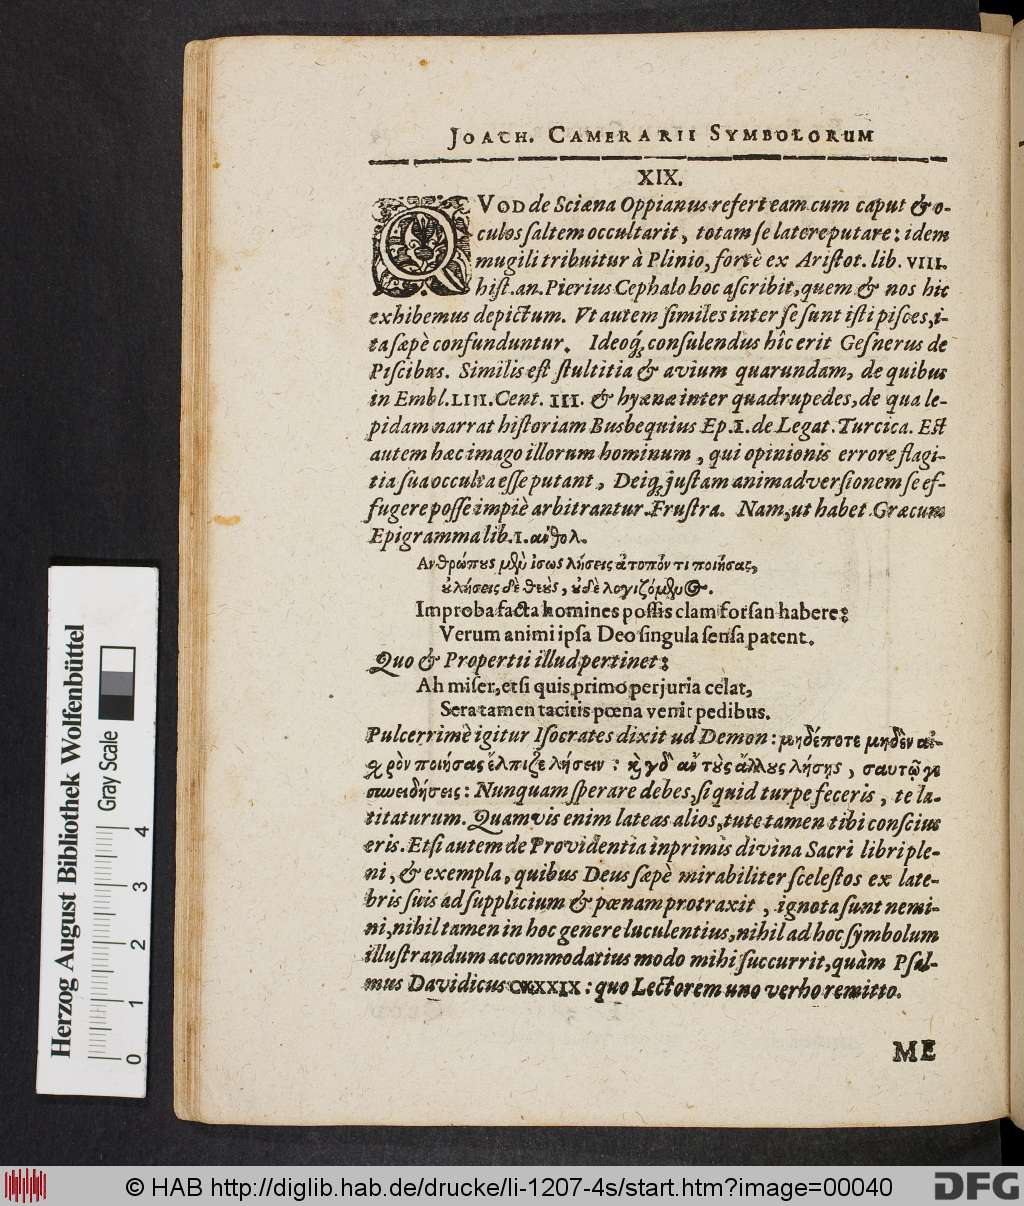 JOACH. CAMERARII SYMBOLORUM
XIX.
QVOD de Sciæna Oppianus refert eam cum caput & o-
culos saltem occultarit, totam se latere putare: idem
mugili tribuitur à Plinio, fortè ex Aristot. lib. VIII.
hist. an. Pierius Cephalo hoc ascribit, quem & nos hic
exhibemus depictum. Vt autem similes inter se sunt isti pisces, i-
ta sæpè confunduntur. Ideoq́; consulendus hîc erit Gesnerus de
Piscibus. Similis est stultitia & avium quarundam, de quibus
in Embl. LIII. Cent. III. & hyænæ inter quadrupedes, de qua le-
pidam narrat historiam Busbequius Ep. I. de Legat. Turcica. Est
autem hæc imago illorum hominum, qui opinionis errore flagi-
tia sua occulta esse putant, Deiq; justam animadversionem se ef-
fugere posse impiè arbitrantur. Frustra. Nam, ut habet Græcum
Epigramma lib. I. ανθολ.
Ανθρώπους μὲν ἰσως λήσεις ἀτοπόν τι ποιήσας,
οὐ λήσεις δὲ θεοὺς, οὐδὲ λογιζόμενος.
Improba facta homines possis clam forsan habere:
Verum animi ipsa Deo singula sensa patent.
Quo & Propertii illud pertinet:
Ah miser, etsi quis primo perjuria celat,
Sera tamen tacitis pœna venit pedibus.
Pulcerrimè igitur Isocrates dixit ad Demon: μηδέποτε μηδὲν αἰ-
χρὸν ποιήσας ἔλπιζε λήσειν: καὶ γὰρ ἂν τοὺς ἄλλους λήσῃς, σαυτῷ γε
συνειδήσεις: Nunquam sperare debes, si quid turpe feceris, te la-
titaturum. Quamvis enim lateas alios, tute tamen tibi conscius
eris. Etsi autem de Providentia inprimis divina Sacri libri ple-
ni, & exempla, quibus Deus sæpè mirabiliter scelestos ex late-
bris suis ad supplicium & pœnam protraxit, ignota sunt nemi-
ni, nihil tamen in hoc genere luculentius, nihil ad hoc symbolum
illustrandum accommodatius modo mihi succurrit, quàm Psal-
mus Davidicus CXXXIX: quo Lectorem uno verbo remitto.
ME
Herzog August Bibliothek Wolfenbüttel
Gray Scale
0 1 2 3 4
© HAB http://diglib.hab.de/drucke/li-1207-4s/start.htm?image=00040
DFG